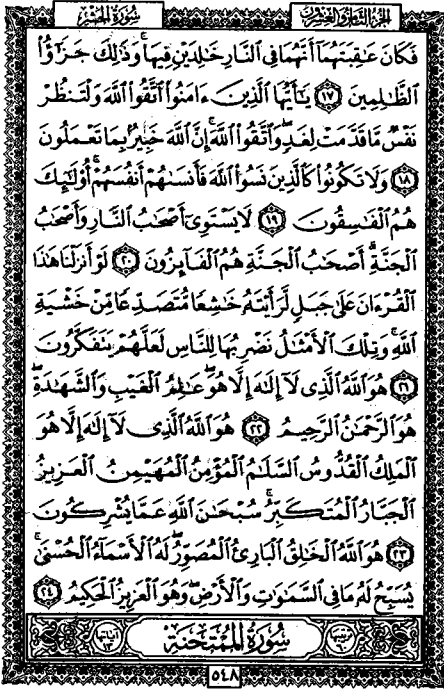 سُورَةُ الحَشْرِ
الجُزْءُ الثَّامِنُ وَالعِشْرُونَ
فَكَانَ عَٰقِبَتَهُمَآ أَنَّهُمَا فِي ٱلنَّارِ خَٰلِدَيْنِ فِيهَاۚ وَذَٰلِكَ جَزَٰٓؤُاْ
ٱلظَّٰلِمِينَ ١٧ يَٰٓأَيُّهَا ٱلَّذِينَ ءَامَنُواْ ٱتَّقُواْ ٱللَّهَ وَلْتَنظُرْ
نَفْسٌ مَّا قَدَّمَتْ لِغَدٍۖ وَٱتَّقُواْ ٱللَّهَۚ إِنَّ ٱللَّهَ خَبِيرٌۢ بِمَا تَعْمَلُونَ
١٨ وَلَا تَكُونُواْ كَٱلَّذِينَ نَسُواْ ٱللَّهَ فَأَنسَىٰهُمْ أَنفُسَهُمْۚ أُوْلَٰٓئِكَ
هُمُ ٱلْفَٰسِقُونَ ١٩ لَا يَسْتَوِيٓ أَصْحَٰبُ ٱلنَّارِ وَأَصْحَٰبُ
ٱلْجَنَّةِۚ أَصْحَٰبُ ٱلْجَنَّةِ هُمُ ٱلْفَآئِزُونَ ٢٠ لَوْ أَنزَلْنَا هَٰذَا
ٱلْقُرْءَانَ عَلَىٰ جَبَلٍ لَّرَأَيْتَهُۥ خَٰشِعًا مُّتَصَدِّعًا مِّنْ خَشْيَةِ
ٱللَّهِۚ وَتِلْكَ ٱلْأَمْثَٰلُ نَضْرِبُهَا لِلنَّاسِ لَعَلَّهُمْ يَتَفَكَّرُونَ
٢١ هُوَ ٱللَّهُ ٱلَّذِي لَآ إِلَٰهَ إِلَّا هُوَۖ عَٰلِمُ ٱلْغَيْبِ وَٱلشَّهَٰدَةِۖ
هُوَ ٱلرَّحْمَٰنُ ٱلرَّحِيمُ ٢٢ هُوَ ٱللَّهُ ٱلَّذِي لَآ إِلَٰهَ إِلَّا هُوَ
ٱلْمَلِكُ ٱلْقُدُّوسُ ٱلسَّلَٰمُ ٱلْمُؤْمِنُ ٱلْمُهَيْمِنُ ٱلْعَزِيزُ
ٱلْجَبَّارُ ٱلْمُتَكَبِّرُۚ سُبْحَٰنَ ٱللَّهِ عَمَّا يُشْرِكُونَ
٢٣ هُوَ ٱللَّهُ ٱلْخَٰلِقُ ٱلْبَارِئُ ٱلْمُصَوِّرُۖ لَهُ ٱلْأَسْمَآءُ ٱلْحُسْنَىٰۚ
يُسَبِّحُ لَهُۥ مَا فِي ٱلسَّمَٰوَٰتِ وَٱلْأَرْضِۖ وَهُوَ ٱلْعَزِيزُ ٱلْحَكِيمُ ٢٤
سُورَةُ المُمْتَحنَةِ
آيَاتُهَا ١٣
٥٤٨